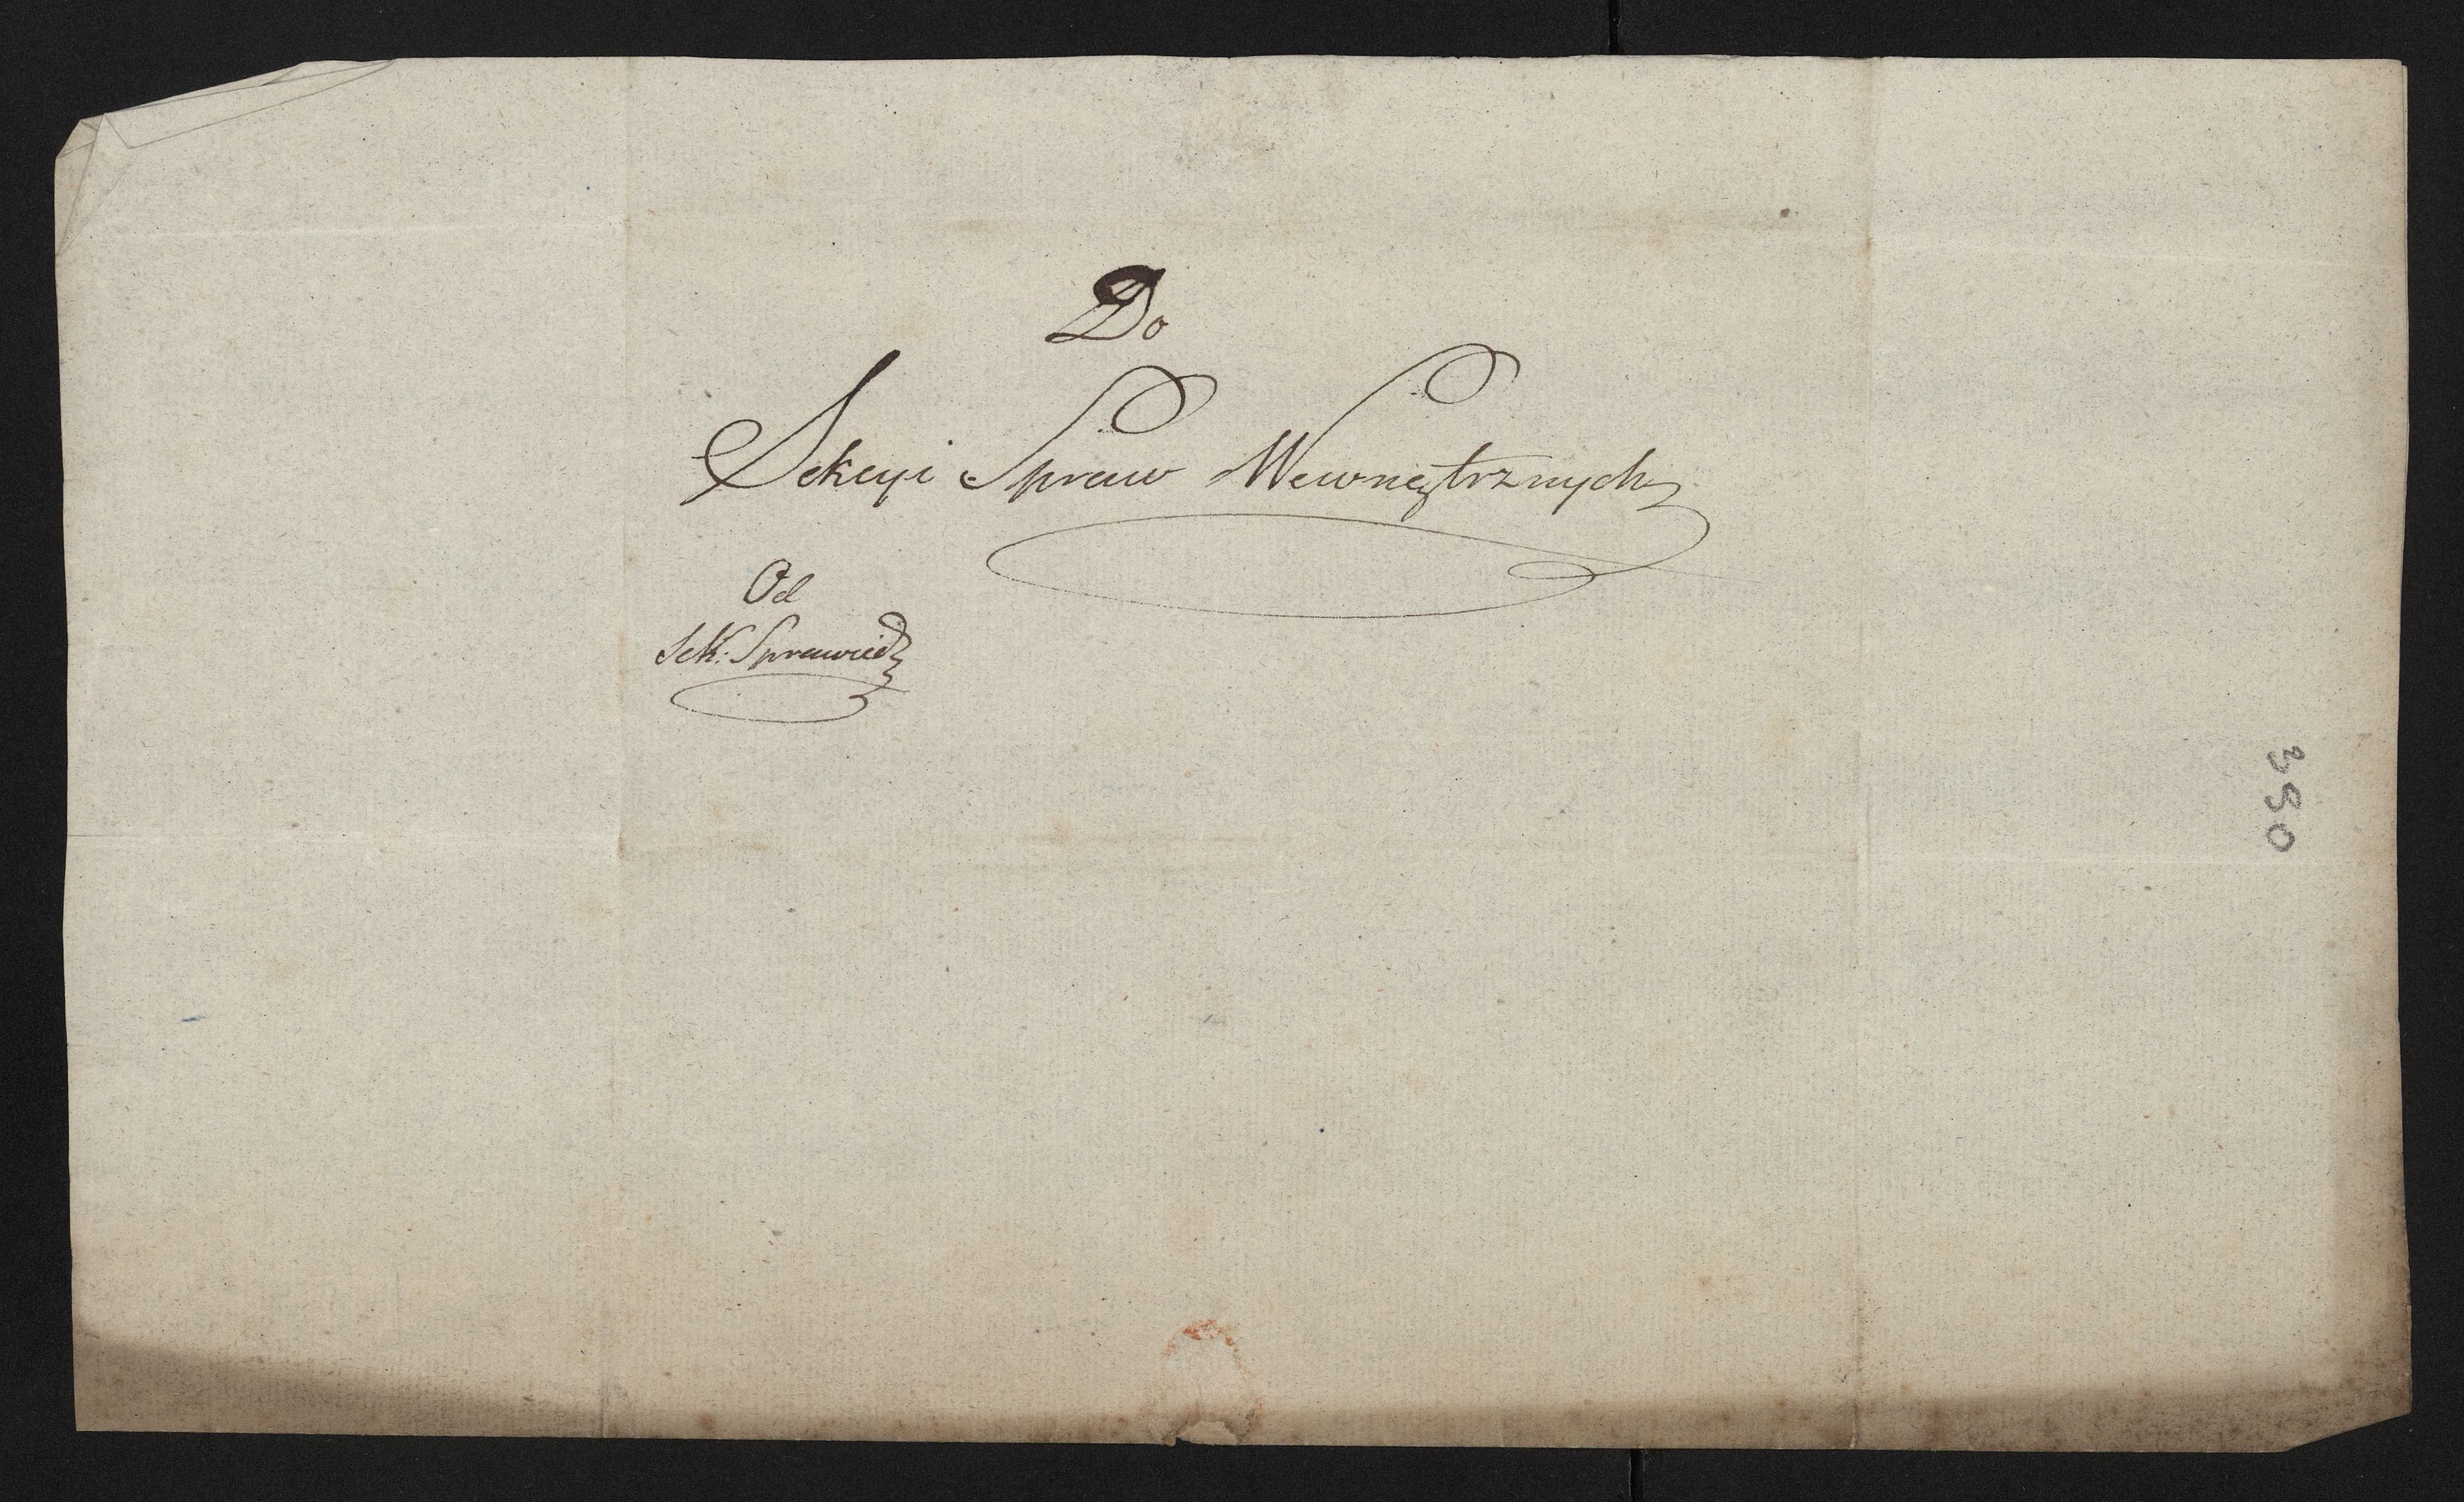 Do
Sekcyi Spraw Wewnętrznych
Od
Sek: Sprawied
390